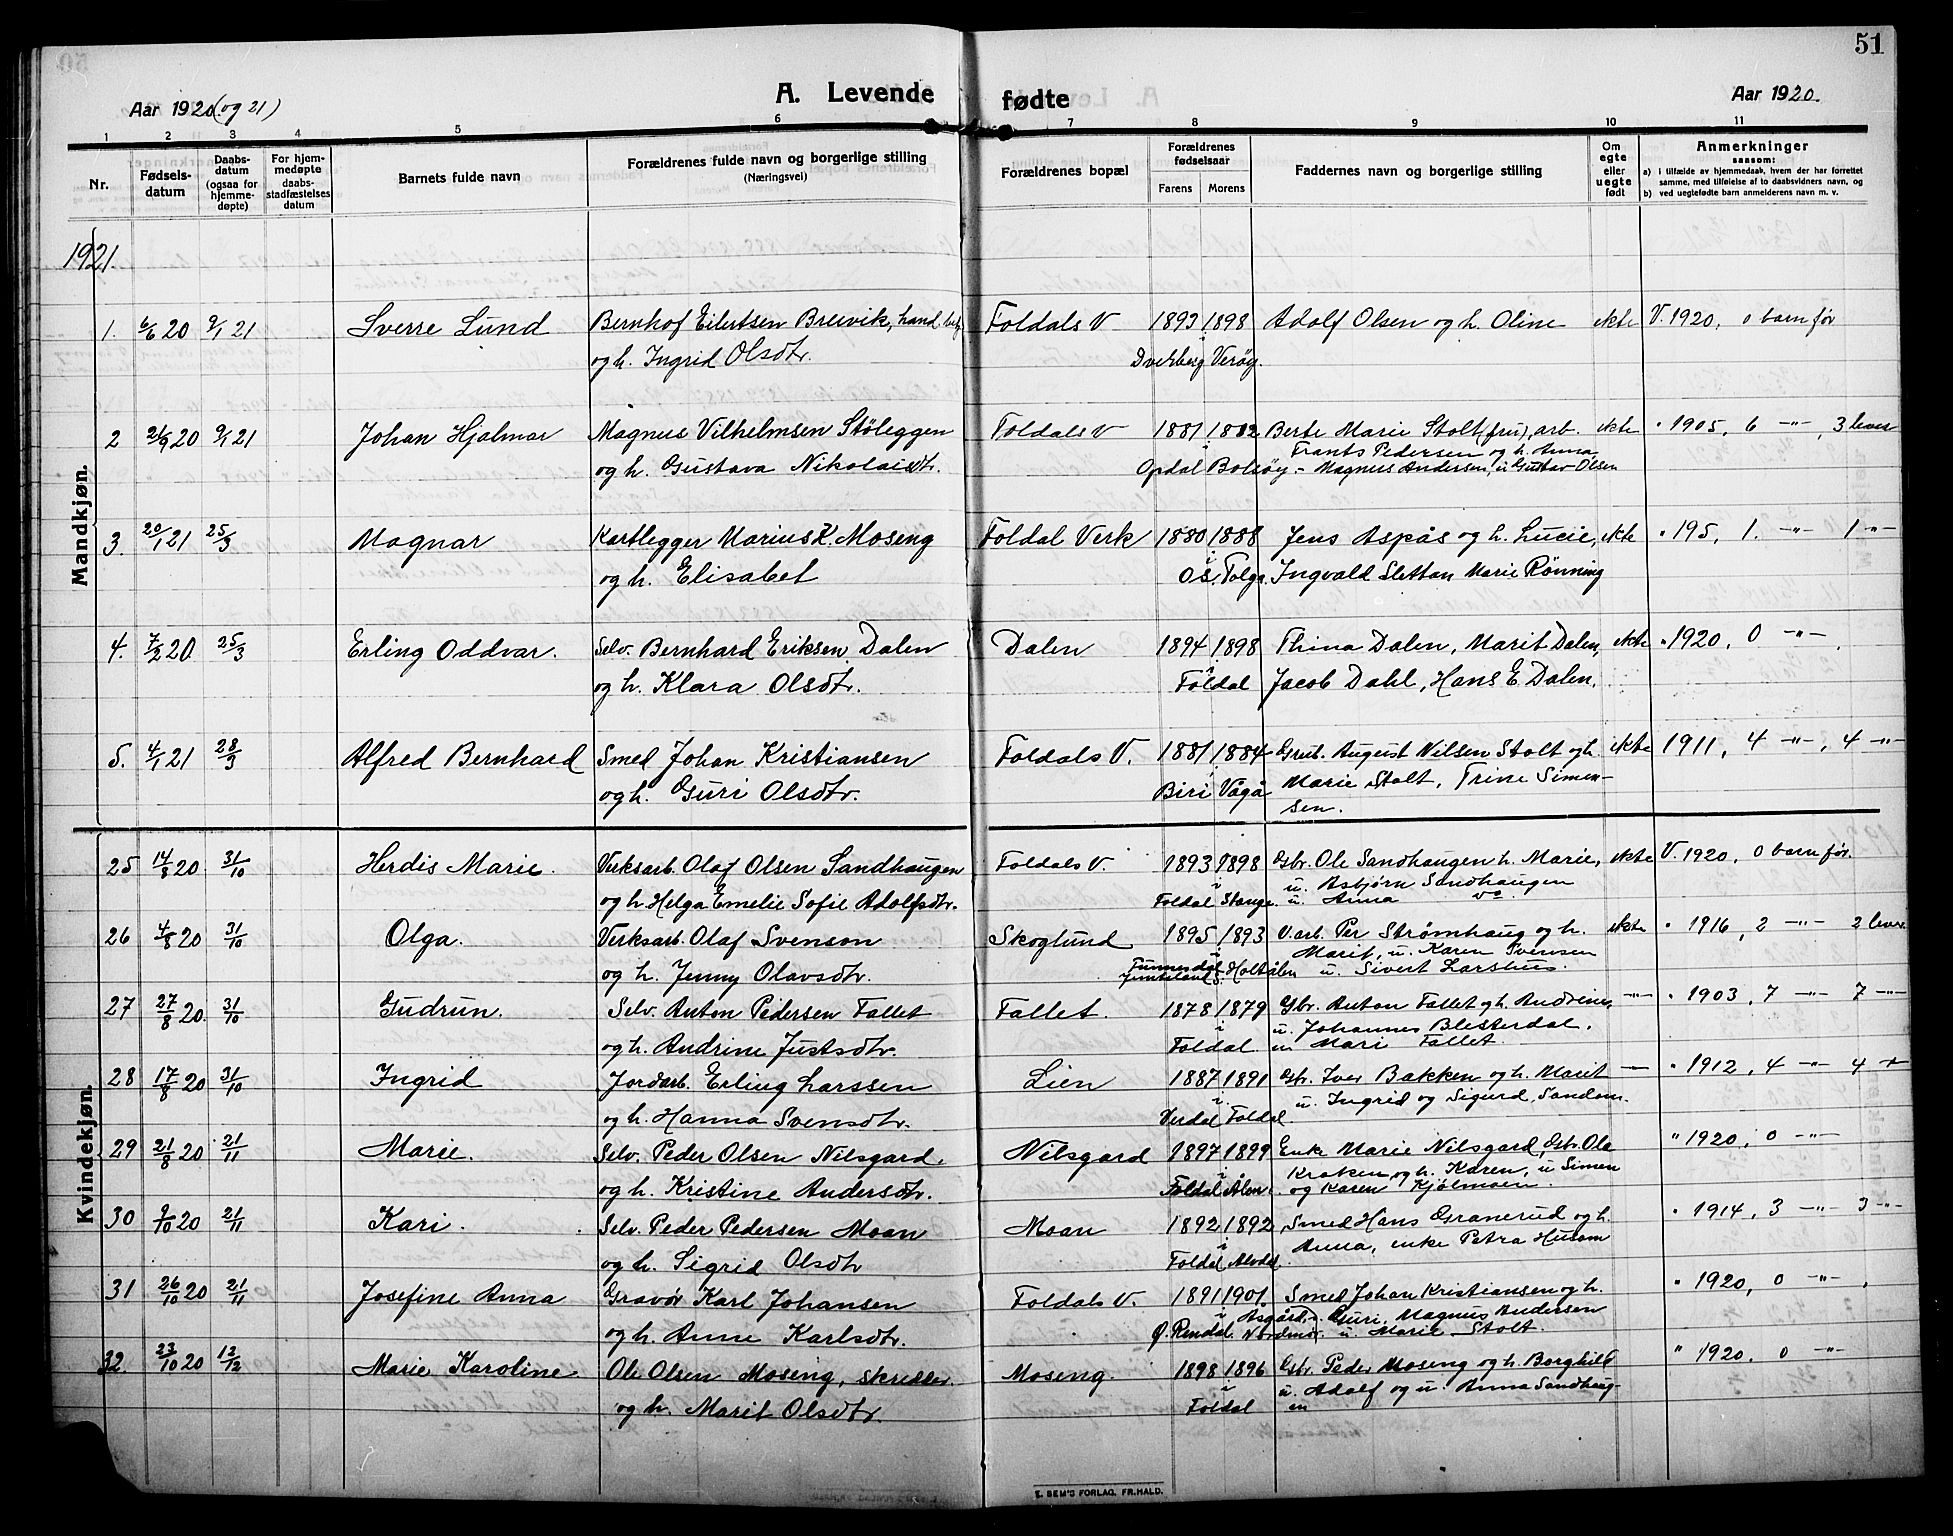 51
Aar 1920 (og 21)
A. Levende fødte
Aar 1920.
1 2 3 4 5 6 7 8 9 10 11
Nr.
Fødsels-
datum
Daabs-
datum
(ogsaa for
hjemme-
døpte)
For hjem-
medøpte
daabs-
stadfæstelses
datum
Barnets fulde navn
Forældrenes fulde navn og borgerlige stilling
(Næringsvei)
Forældrenes bopæl
Forældrenes
fødselsaar
Farens Morens
Faddernes navn og borgerlige stilling
Om
egte
eller
uegte
født
Anmerkninger
saasom:
a) i tilfælde av hjemmedaab, hvem der har forrettet
samme, med tilføielse af to daabsvidners navn, og
b) ved uegtefødte barn anmelderens navn m. v.
1921.
Mandkjøn.
1. 6/6 20 9/1 21 Sverre Lund Bernhof Eilertsen Breivik, hand.betj. Foldals V 1893 1898 Adolf Olsen og h. Oline ekte V. 1920, 0 barn før
og h. Ingrid Olsdtr. Dverberg Værøy.
2 21/9 20 9/1 21 Johan Hjalmar Magnus Vilhelmsen Støleggen Foldals V 1881 1882 Berte Marie Stolt (fru), arb. ekte " 1905, 6 -"-, 3 lever
og h. Gustava Nikolaisdtr. Opdal Bolsøy - Frants Pedersen og h. Anna
Magnus Andersen, u. Gustav Olsen
3 20/1 21 25/3 Magnar Kartlegger Marius K. Moseng Foldal Verk 1880 1888 Jens Aspås og h. Lucie, ekte " 195, 1. -"- 1 -"-
og h. Elisabet Os. Tolga Ingvald Slettan Marie Rønning
4. 7/2 20 25/3 Erling Oddvar. Selv. Bernhard Eriksen Dalen Dalen 1894 1898 Thina Dalen, Marit Dalen, ekte " 1920, 0 -"-,
og h. Klara Olsdtr. i Foldal Jacob Dahl, Hans E Dalen.
5. 4/1 21 28/3 Alfred Bernhard Smed Johan Kristiansen Foldals V. 1881 1884 Grub. August Nilsen Stolt og h. ekte 1911, 4 -"-, 4 -"-
og h. Guri Olsdtr. Biri Vågå Marie Stolt, Trine Simen-
sen.
Kvindekjøn.
25 14/8 20 31/10 Herdis Marie. Verksarb. Olaf Olsen Sandhaugen Foldals V. 1893 1898 Gbr. Ole Sandhaugen h. Marie, ekte V. 1920, 0 barn før.
og h. Helga Emelie Sofie Adolfsdtr. Foldal Stange. u. Asbjørn Sandhaugen
u. Anna do.
26 4/8 20 31/10 Olga. Verksarb. Olaf Svenson Skoglund 1895 1893 V.arb. Per Strømhaug og h. ekte " 1916, 2 -"- 2 lever
og h. Jenny Olavsdtr. Holtålen Marit, u. Karen Svensen
u. Sivert Larshus.
27 27/8 20. 31/10 Gudrun. Selv. Anton Pedersen Fallet Fallet. 1878 1879 Gbr. Anton Fallet og h. Andrine, -"- " 1903, 7 -"- 7 -"-
og h. Andrine Justsdtr. i Foldal u. Johannes Blesterdal.
u. Mari Fallet.
28 17/8 20 31/10 Ingrid Jordarb. Erling Larssen Lien 1887 1891 Gbr. Iver Bakken og h. Marit — " 1912, 4 -"- 4 -"-
og h. Hanna Svensdtr. Verdal Foldal. u. Ingrid og Sigurd Sandom.
29 21/8 20 21/11 Marie. Selv. Peder Olsen Nilsgard. Nilsgard 1897 1899 Enke Marie Nilsgard, Gbr. Ole " 1920, 0 -"-
og h. Kristine Andersdtr. Foldal Ålen. Kroken og h. Karen, u Simen
og Karen Kjølmoen.
30 9/10 20 21/11 Kari. Selv. Peder Pedersen Moan Moan 1892 1892 Smed Hans Granerud og h. " 1914, 3 -"- 3 -"-
og h. Sigrid Olsdtr Foldal Alvdal. Anna, enke Petra Husom
31 26/10 20 21/11 Josefine Anna Gravør Karl Johansen Foldals V. 1891 1901. Smed Johan Kristiansen og h. " 1920, 0 -"-,
og h. Anne Karlsdtr. Ø. Rendal. Asgård, Nordmør Guri, Magnus Andersen
u. Marie Stolt.
32. 23/10 20 12/12 Marie Karoline Ole Olsen Moseng, skredder. Moseng. 1898 1896 Gbr. Peder Moseng og h. Borghild " 1920. 0 -"-
og h. Marit Olsdtr. i Foldal u. Adolf og u. Anna Sandhaug-
en
E. SEM'S FORLAG, FR.HALD.